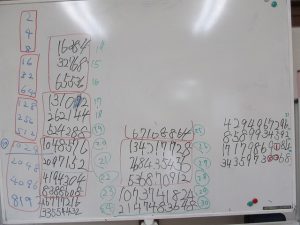 2
4
8
16
32
64
128
256
512
1024
2048
4096
819
16384
32768
65536
131072
262144
524288
1048576
2097152
4194304
8388608
16777216
33554432
67108864
134217728
268435456
536870912
1073741824
2147483648
4294967296
8589934592
17179869184
34359738368